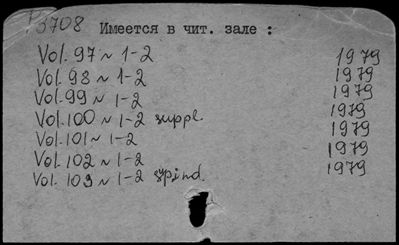 P3708 Имеется в чит. зале :
Vol. 97 N 1-2 1979
Vol. 98 N 1-2 1979
Vol. 99 N 1-2 1979
Vol. 100 N 1-2 suppl. 1979
Vol. 101 N 1-2 1979
Vol. 102 N 1-2 1979
Vol. 103 N 1-2 1979